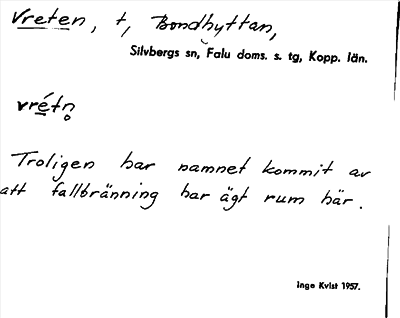 Vreten, t, Bondhyttan,
Silvbergs sn, Falu doms. s. tg, Kopp. län.
vrétn̥
Troligen har namnet kommit av
att fallbränning har ägt rum här.
Inge Kvist 1957.